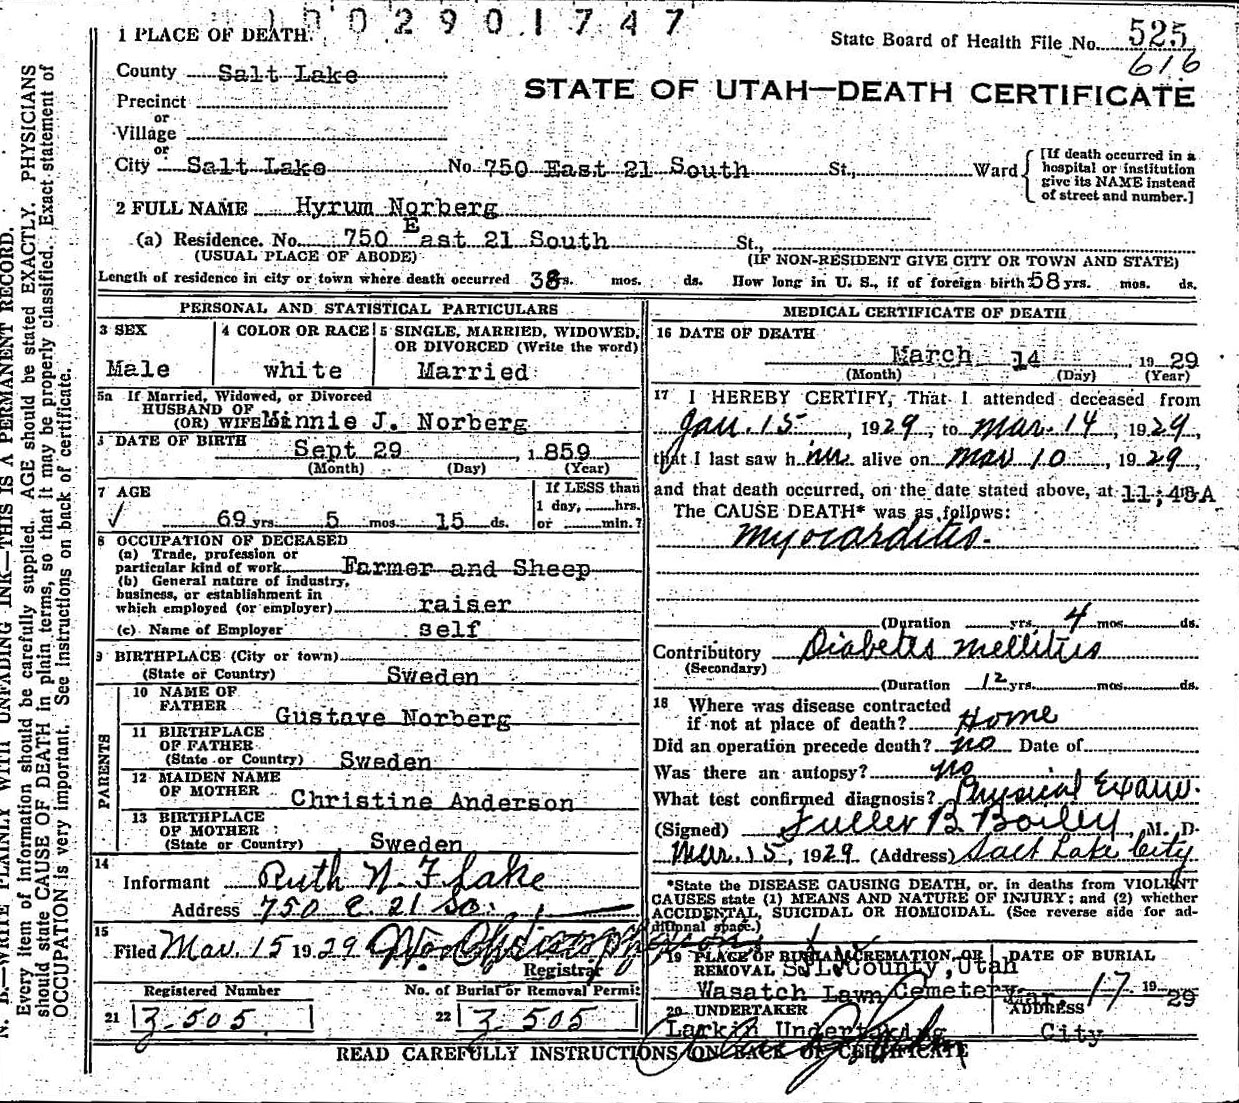 1002901747
1 PLACE OF DEATH.
State Board of Health File No. 525
616
County Salt Lake
STATE OF UTAH—DEATH CERTIFICATE
Precinct
or
Village
or
City Salt Lake No. 750 East 21 South St., Ward
[If death occurred in a
hospital or institution
give its NAME instead
of street and number.]
2 FULL NAME Hyrum Norberg
(a) Residence. No. 750 East 21 South St.,
(USUAL PLACE OF ABODE) (IF NON-RESIDENT GIVE CITY OR TOWN AND STATE)
Length of residence in city or town where death occurred 38 yrs. mos. ds. How long in U. S., if of foreign birth 58 yrs. mos. ds.
PERSONAL AND STATISTICAL PARTICULARS
3 SEX
Male
4 COLOR OR RACE
white
5 SINGLE, MARRIED, WIDOWED,
OR DIVORCED (Write the word)
Married
5a If Married, Widowed, or Divorced
HUSBAND OF
(OR) WIFE Minnie J. Norberg
DATE OF BIRTH
Sept 29 , 1859
(Month) (Day) (Year)
7 AGE
69 yrs. 5 mos. 15 ds.
If LESS than
1 day, hrs.
or min.?
8 OCCUPATION OF DECEASED
(a) Trade, profession or
particular kind of work Farmer and Sheep
(b) General nature of industry,
business, or establishment in
which employed (or employer) raiser
(c) Name of Employer self
9 BIRTHPLACE (City or town)
(State or Country) Sweden
PARENTS
10 NAME OF
FATHER
Gustave Norberg
11 BIRTHPLACE
OF FATHER
(State or Country) Sweden
12 MAIDEN NAME
OF MOTHER
Christine Anderson
13 BIRTHPLACE
OF MOTHER
(State or Country) Sweden
14
Informant Ruth N. Flake
Address 750 E. 21 So.
15
Filed Mar. 15 1929
Registrar
Registered Number
21 3-505
No. of Burial or Removal Permit
22 3-505
MEDICAL CERTIFICATE OF DEATH
16 DATE OF DEATH
March 14 , 1929
(Month) (Day) (Year)
17 I HEREBY CERTIFY, That I attended deceased from
Jan. 15 , 1929, to Mar. 14 , 1929,
that I last saw h im alive on Mar 10 , 1929,
and that death occurred, on the date stated above, at 11;48A
The CAUSE DEATH* was as follows:
Myocarditis.
(Duration yrs. 4 mos. ds.
Contributory Diabetes mellitus
(Secondary)
(Duration 12 yrs. mos. ds.
18 Where was disease contracted
if not at place of death? Home
Did an operation precede death? no Date of
Was there an autopsy? no
What test confirmed diagnosis? Physical Exam.
(Signed) Fuller B. Bailey, M. D.
Mar. 15, 1929 (Address) Salt Lake City
*State the DISEASE CAUSING DEATH, or, in deaths from VIOLENT
CAUSES state (1) MEANS AND NATURE OF INJURY; and (2) whether
ACCIDENTAL, SUICIDAL OR HOMICIDAL. (See reverse side for ad-
ditional space.)
19 PLACE OF BURIAL, CREMATION, OR
REMOVAL S.L. County, Utah
Wasatch Lawn Cemetery
DATE OF BURIAL
Mar. 17 1929
20 UNDERTAKER
Larkin Undertaking
ADDRESS
City
READ CAREFULLY INSTRUCTIONS ON BACK OF CERTIFICATE
N. B.—WRITE PLAINLY WITH UNFADING INK—THIS IS A PERMANENT RECORD.
Every item of information should be carefully supplied. AGE should be stated EXACTLY. PHYSICIANS
should state CAUSE OF DEATH in plain terms, so that it may be properly classified. Exact statement of
OCCUPATION is very important. See instructions on back of certificate.